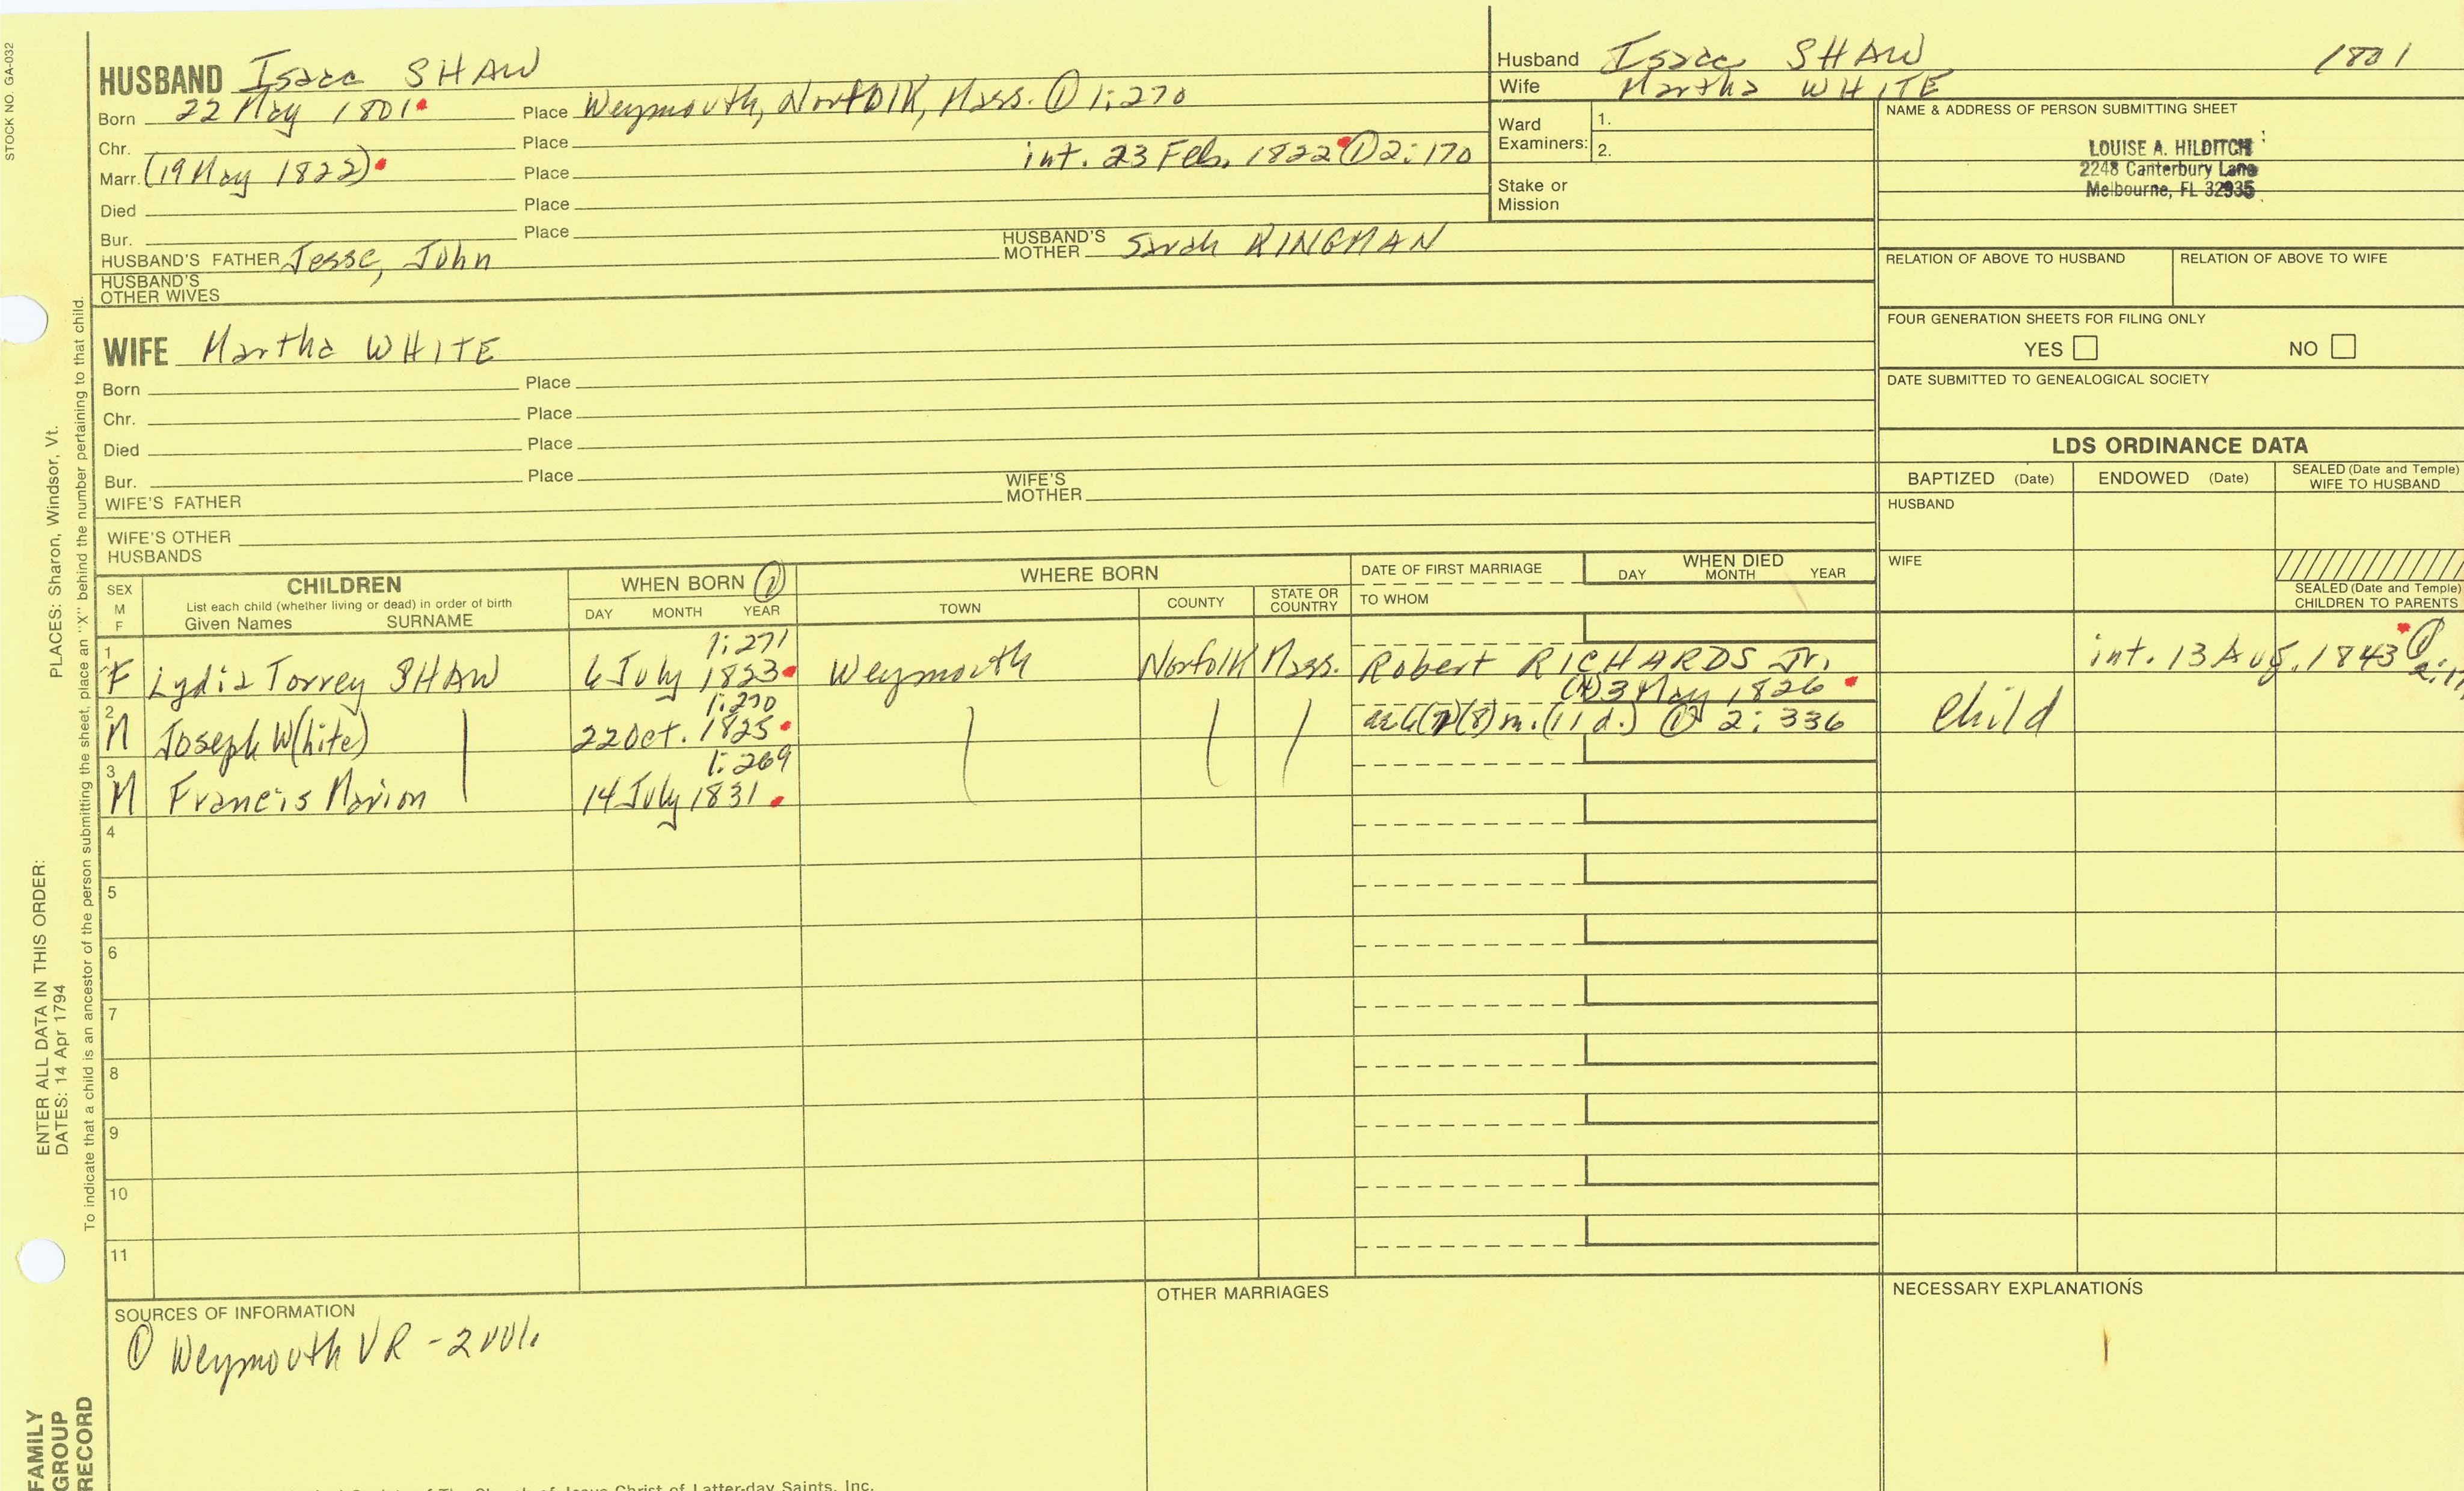 STOCK NO. GA-032
HUSBAND Isaac SHAW
Born 22 May 1801 Place Weymouth, Norfolk, Mass. ① 1:270
Chr. Place
int. 23 Feb. 1822 ① 2:170
Marr. (19 May 1822) Place
Died Place
Bur. Place
HUSBAND'S FATHER Jesse, John HUSBAND'S MOTHER Sarah KINGMAN
HUSBAND'S OTHER WIVES
WIFE Martha WHITE
Born Place
Chr. Place
Died Place
Bur. Place
WIFE'S FATHER WIFE'S MOTHER
WIFE'S OTHER HUSBANDS
Husband Isaac SHAW 1801
Wife Martha WHITE
Ward Examiners: 1.
2.
Stake or Mission
NAME & ADDRESS OF PERSON SUBMITTING SHEET
LOUISE A. HILDITCH
2248 Canterbury Lane
Melbourne, FL 32935
RELATION OF ABOVE TO HUSBAND RELATION OF ABOVE TO WIFE
FOUR GENERATION SHEETS FOR FILING ONLY
YES NO
DATE SUBMITTED TO GENEALOGICAL SOCIETY
LDS ORDINANCE DATA
BAPTIZED (Date) ENDOWED (Date) SEALED (Date and Temple) WIFE TO HUSBAND
HUSBAND
WIFE
SEALED (Date and Temple) CHILDREN TO PARENTS
SEX M F
CHILDREN
List each child (whether living or dead) in order of birth
Given Names SURNAME
WHEN BORN ①
DAY MONTH YEAR
WHERE BORN
TOWN COUNTY STATE OR COUNTRY
DATE OF FIRST MARRIAGE
TO WHOM
WHEN DIED
DAY MONTH YEAR
1:271
1 F Lydia Torrey SHAW 6 July 1823 Weymouth Norfolk Mass. Robert RICHARDS Jr. int. 13 Aug. 1843 ①
1:270 3 May 1826
2 M Joseph W(hite) 22 Oct. 1825 (8)m. (11d.) ① 2:336 child
1:269
3 M Francis Marion 14 July 1831
4
5
6
7
8
9
10
11
SOURCES OF INFORMATION
① Weymouth VR - 2 vol.
OTHER MARRIAGES
NECESSARY EXPLANATIONS
ENTER ALL DATA IN THIS ORDER:
DATES: 14 Apr 1794
PLACES: Sharon, Windsor, Vt.
To indicate that a child is an ancestor of the person submitting the sheet, place an "X" behind the number pertaining to that child.
FAMILY
GROUP
RECORD
of The Church of Jesus Christ of Latter-day Saints, Inc.